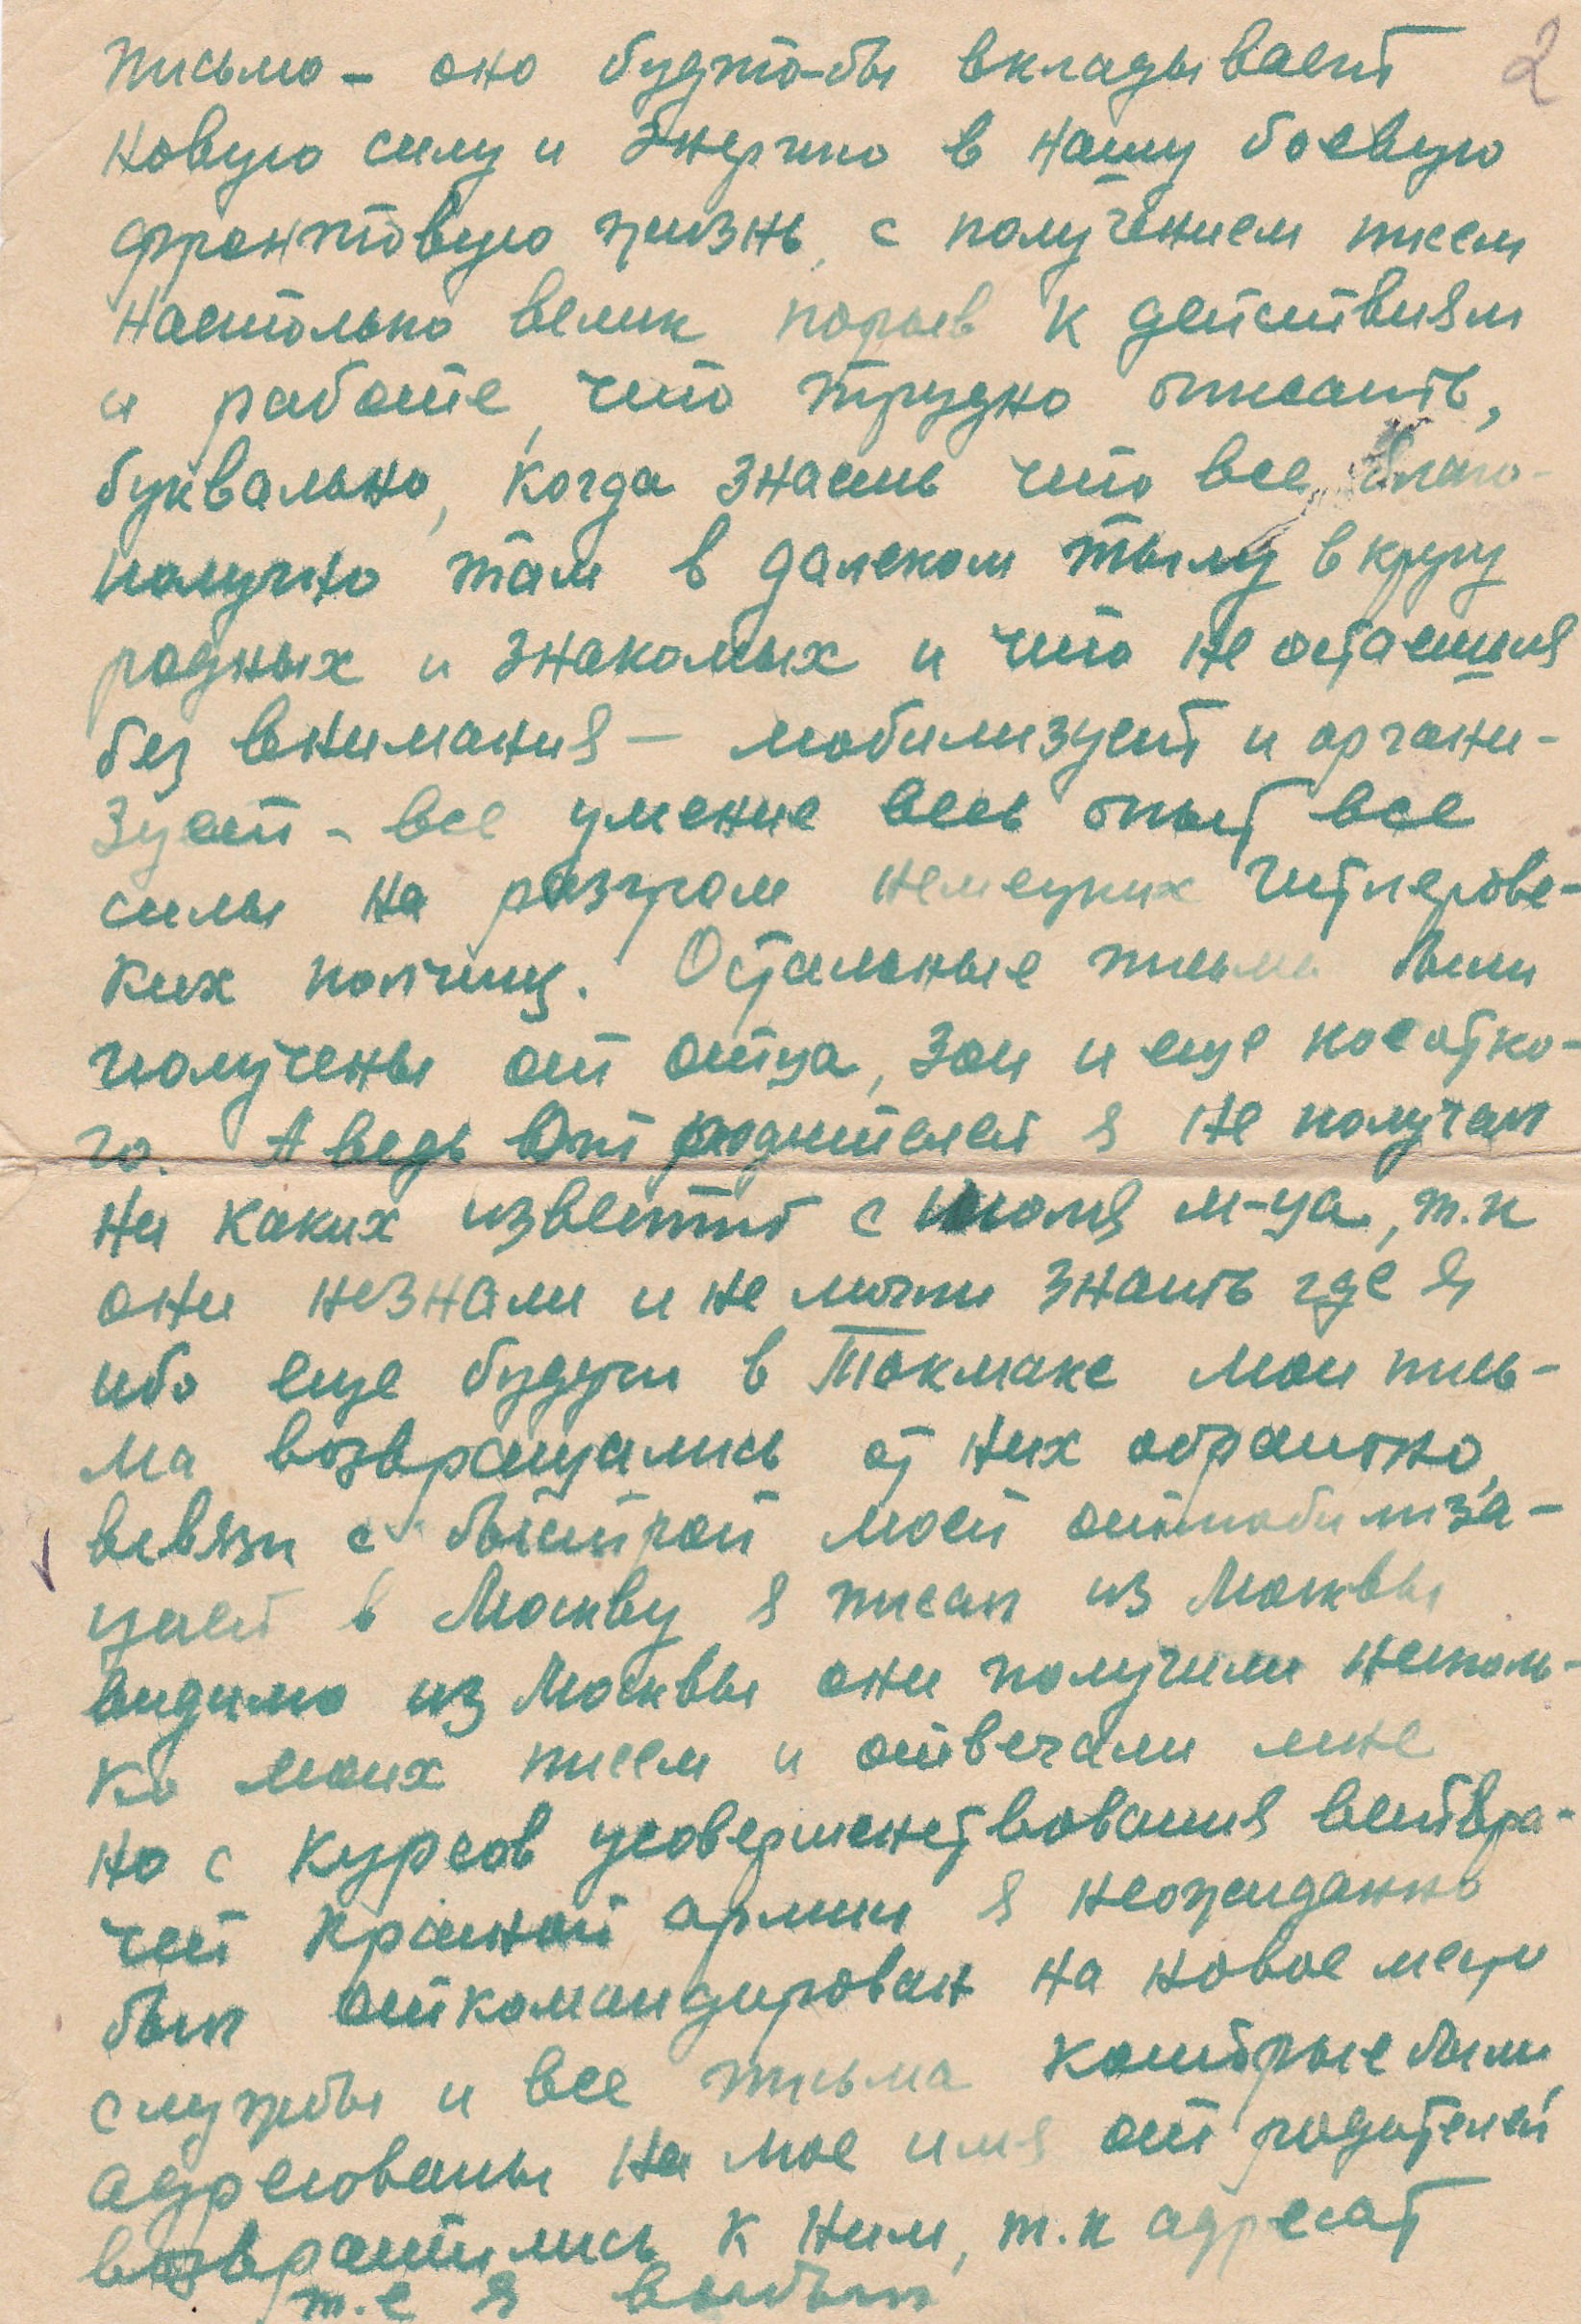 2
письмо – оно будто-бы вкладывает
новую силу и энергию в нашу боевую
фронтовую жизнь, с получением писем
настолько велик порыв к действиям
и работе, что трудно описать,
буквально, когда знаешь что все благо-
получно там в далеком тылу в кругу
родных и знакомых и что не остаешься
без внимания – мобилизует и органи-
зует – все умение весь опыт все
силы на разгром немецких гитлеровс-
ких полчищ. Остальные письма были
получены от отца, Зои и еще кое от ко-
го. А ведь от родителей я не получал
ни каких известий с июля м-ца, т.к
они незнали и не могли знать где я
ибо еще будучи в Токмаке мои пись-
ма возвращались от них обратно,
всвязи с быстрой моей отмобилиза-
цией в Москву я писал из Москвы
видимо из Москвы они получили несколь-
ко моих писем и отвечали мне
но с курсов усовершенствования ветвра-
чей Красной армии я неожиданно
был откомандирован на новое место
службы и все письма которые были
адресованы на мое имя от родителей
возвратились к ним, т.к адресат
т.е я выбыл